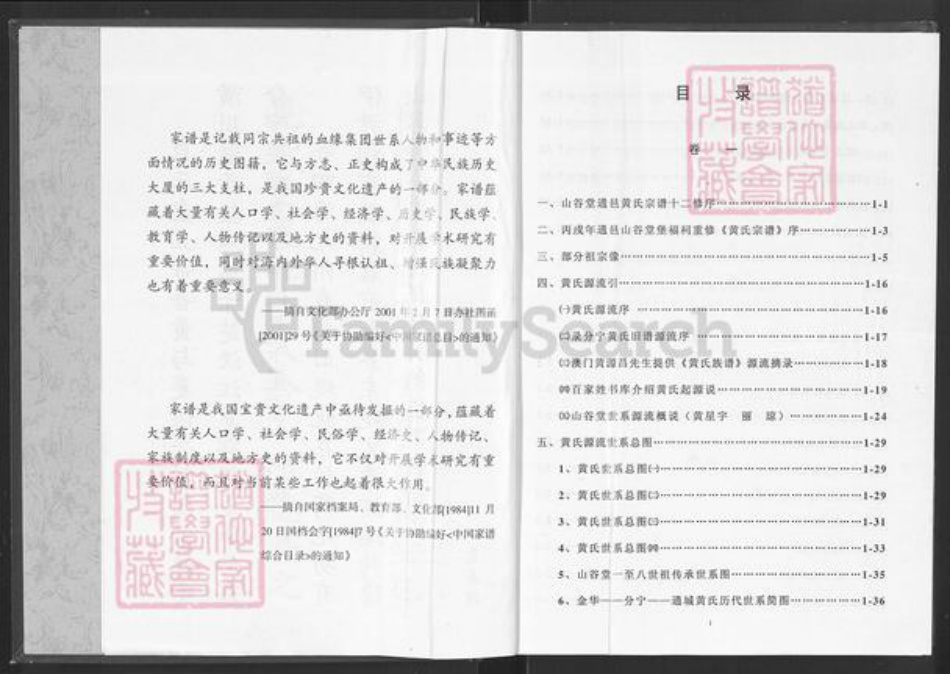 家谱是记载同宗共祖的血缘集团世系人物和事迹等方
面情况的历史图籍，它与方志、正史构成了中华民族历史
大厦的三大支柱，是我国珍贵文化遗产的一部分。家谱蕴
藏着大量有关人口学、社会学、经济学、历史学、民族学、
教育学、人物传记以及地方史的资料，对开展学术研究有
重要价值，同时对海内外华人寻根认祖、增强民族凝聚力
也有着重要意义。
——摘自文化部办公厅 2001 年 2 月 7 日办社图函
[2001]29 号《关于协助编好<中国家谱总目>的通知》
家谱是我国宝贵文化遗产中亟待发掘的一部分，蕴藏着
大量有关人口学、社会学、民俗学、经济史、人物传记、
家族制度以及地方史的资料，它不仅对开展学术研究有重
要价值，而且对当前某些工作也起着很大作用。
——摘自国家档案局、教育部、文化部[1984]11 月
20 日国档会字[1984]7 号《关于协助编好<中国家谱
综合目录>的通知》
目 录
卷 一
一、山谷堂通邑黄氏宗谱十二修序…………1-1
二、丙戌年通邑山谷堂堡福祠重修《黄氏宗谱》序…………1-3
三、部分祖宗像…………1-5
四、黄氏源流引…………1-16
㈠黄氏源流序…………1-16
㈡录分宁黄氏旧谱源流序…………1-17
㈢澳门黄源昌先生提供《黄氏族谱》源流摘录…………1-18
㈣百家姓书库介绍黄氏起源说…………1-19
㈤山谷堂世系源流概说（黄星宇 丽 琼）…………1-24
五、黄氏源流世系总图…………1-29
1、黄氏世系总图㈠…………1-29
2、黄氏世系总图㈡…………1-29
3、黄氏世系总图㈢…………1-31
4、黄氏世系总图㈣…………1-33
5、山谷堂一至八世祖传承世系图…………1-35
6、金华——分宁——通城黄氏历代世系简图…………1-36
1
FamilySearch